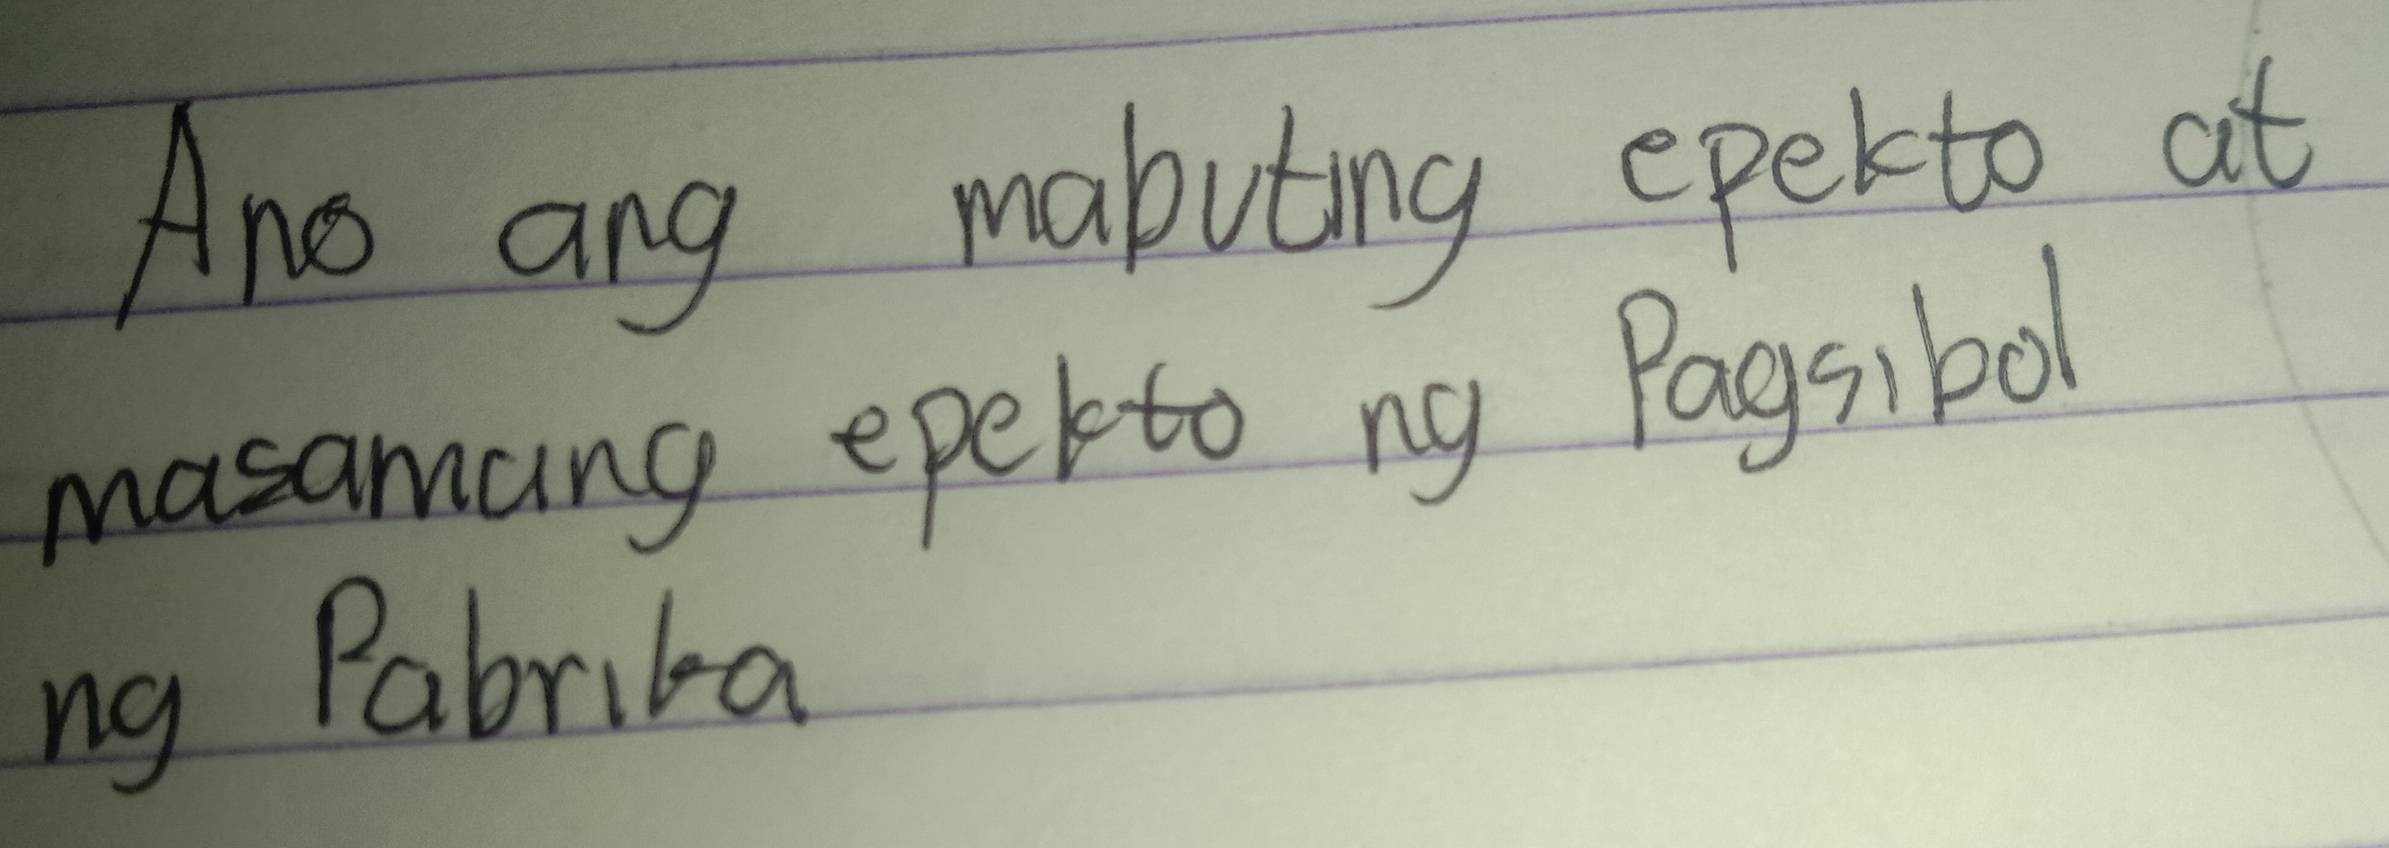 Ano ang mabuting epekto at
masamang epekto ng Pagsibol
ng Pabrika